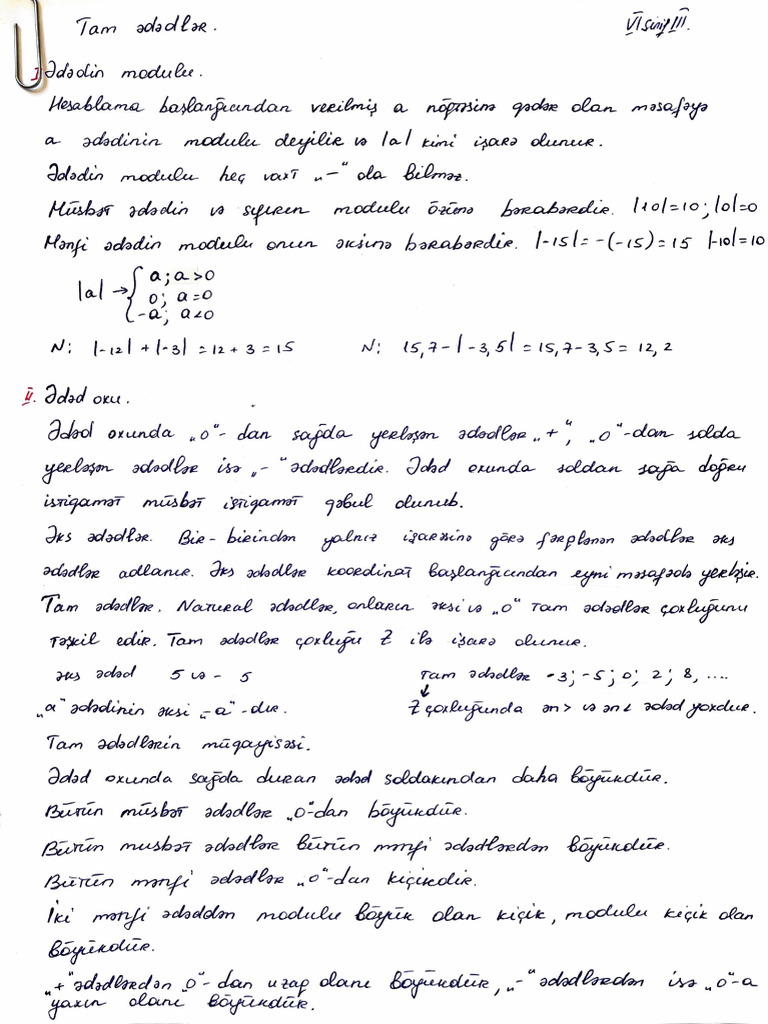 Tam ədədlər.
VI sinif III.
I Ədədin modulu.
Hesablama başlanğıcından verilmiş a nöqtəsinə qədər olan məsafəyə
a ədədinin modulu deyilir və |a| kimi işarə olunur.
Ədədin modulu heç vaxt „-“ ola bilməz.
Müsbət ədədin və sıfırın modulu özünə bərabərdir. |10|=10; |0|=0
Mənfi ədədin modulu onun əksinə bərabərdir. |-15|=-(-15)=15 |-10|=10
|a| → { a; a>0
0; a=0
-a; a<0
N: |-12|+|-3|=12+3=15 N: 15,7-|-3,5|=15,7-3,5=12,2
II. Ədəd oxu.
Ədəd oxunda „0“-dan sağda yerləşən ədədlər „+“, „0“-dan solda
yerləşən ədədlər isə „-“ ədədlərdir. Ədəd oxunda soldan sağa doğru
istiqamət müsbət istiqamət qəbul olunub.
Əks ədədlər. Bir-birindən yalnız işarəsinə görə fərqlənən ədədlər əks
ədədlər adlanır. Əks ədədlər koordinat başlanğıcından eyni məsafədə yerləşir.
Tam ədədlər. Natural ədədlər, onların əksi və „0“ tam ədədlər çoxluğunu
təşkil edir. Tam ədədlər çoxluğu Z ilə işarə olunur.
əks ədəd 5 və - 5 Tam ədədlər -3; -5; 0; 2; 8, ....
↓
„a“ ədədinin əksi „-a“-dır. Z çoxluğunda ən > və ən < ədəd yoxdur.
Tam ədədlərin müqayisəsi.
Ədəd oxunda sağda duran ədəd soldakından daha böyükdür.
Bütün müsbət ədədlər „0“-dan böyükdür.
Bütün musbət ədədlər bütün mənfi ədədlərdən böyükdür.
Bütün mənfi ədədlər „0“-dan kiçikdir.
İki mənfi ədəddən modulu böyük olan kiçik, modulu kiçik olan
böyükdür.
„+“ ədədlərdən „0“-dan uzaq olanı böyükdür, „-“ ədədlərdən isə „0“-a
yaxın olanı böyükdür.